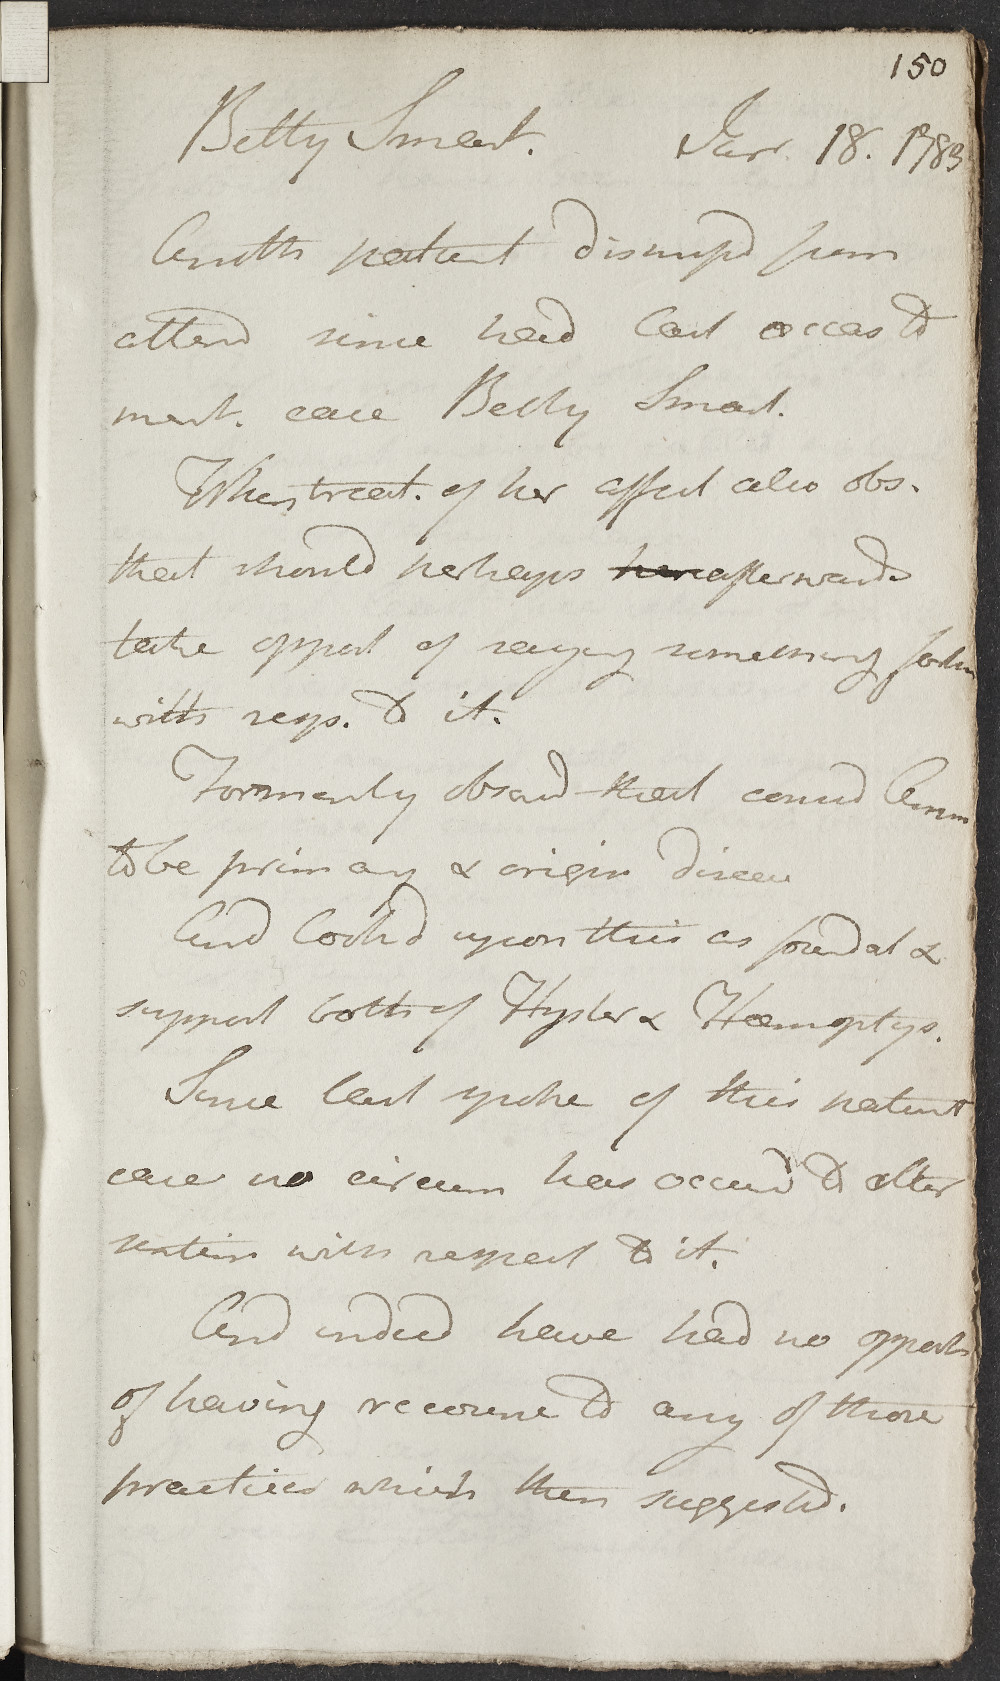 150
Betty Smart. Jan. 18. 1783
Anoth patient dismiss'd from
attend since had last occas to
ment. case Betty Smart.
When treat. of her affect also obs.
that should perhaps her afterwards
take opport of saying something farth
with resp. to it.
Formerly observd that consid Amen
to be primary & origin disease
And look'd upon this as foundat &
support both of Hyster & Haemoptys.
Since last spoke of this patient
case no circum has occurd to alter
sentim with respect to it.
And indeed have had no opport
of having recourse to any of those
practices which then suggestd.